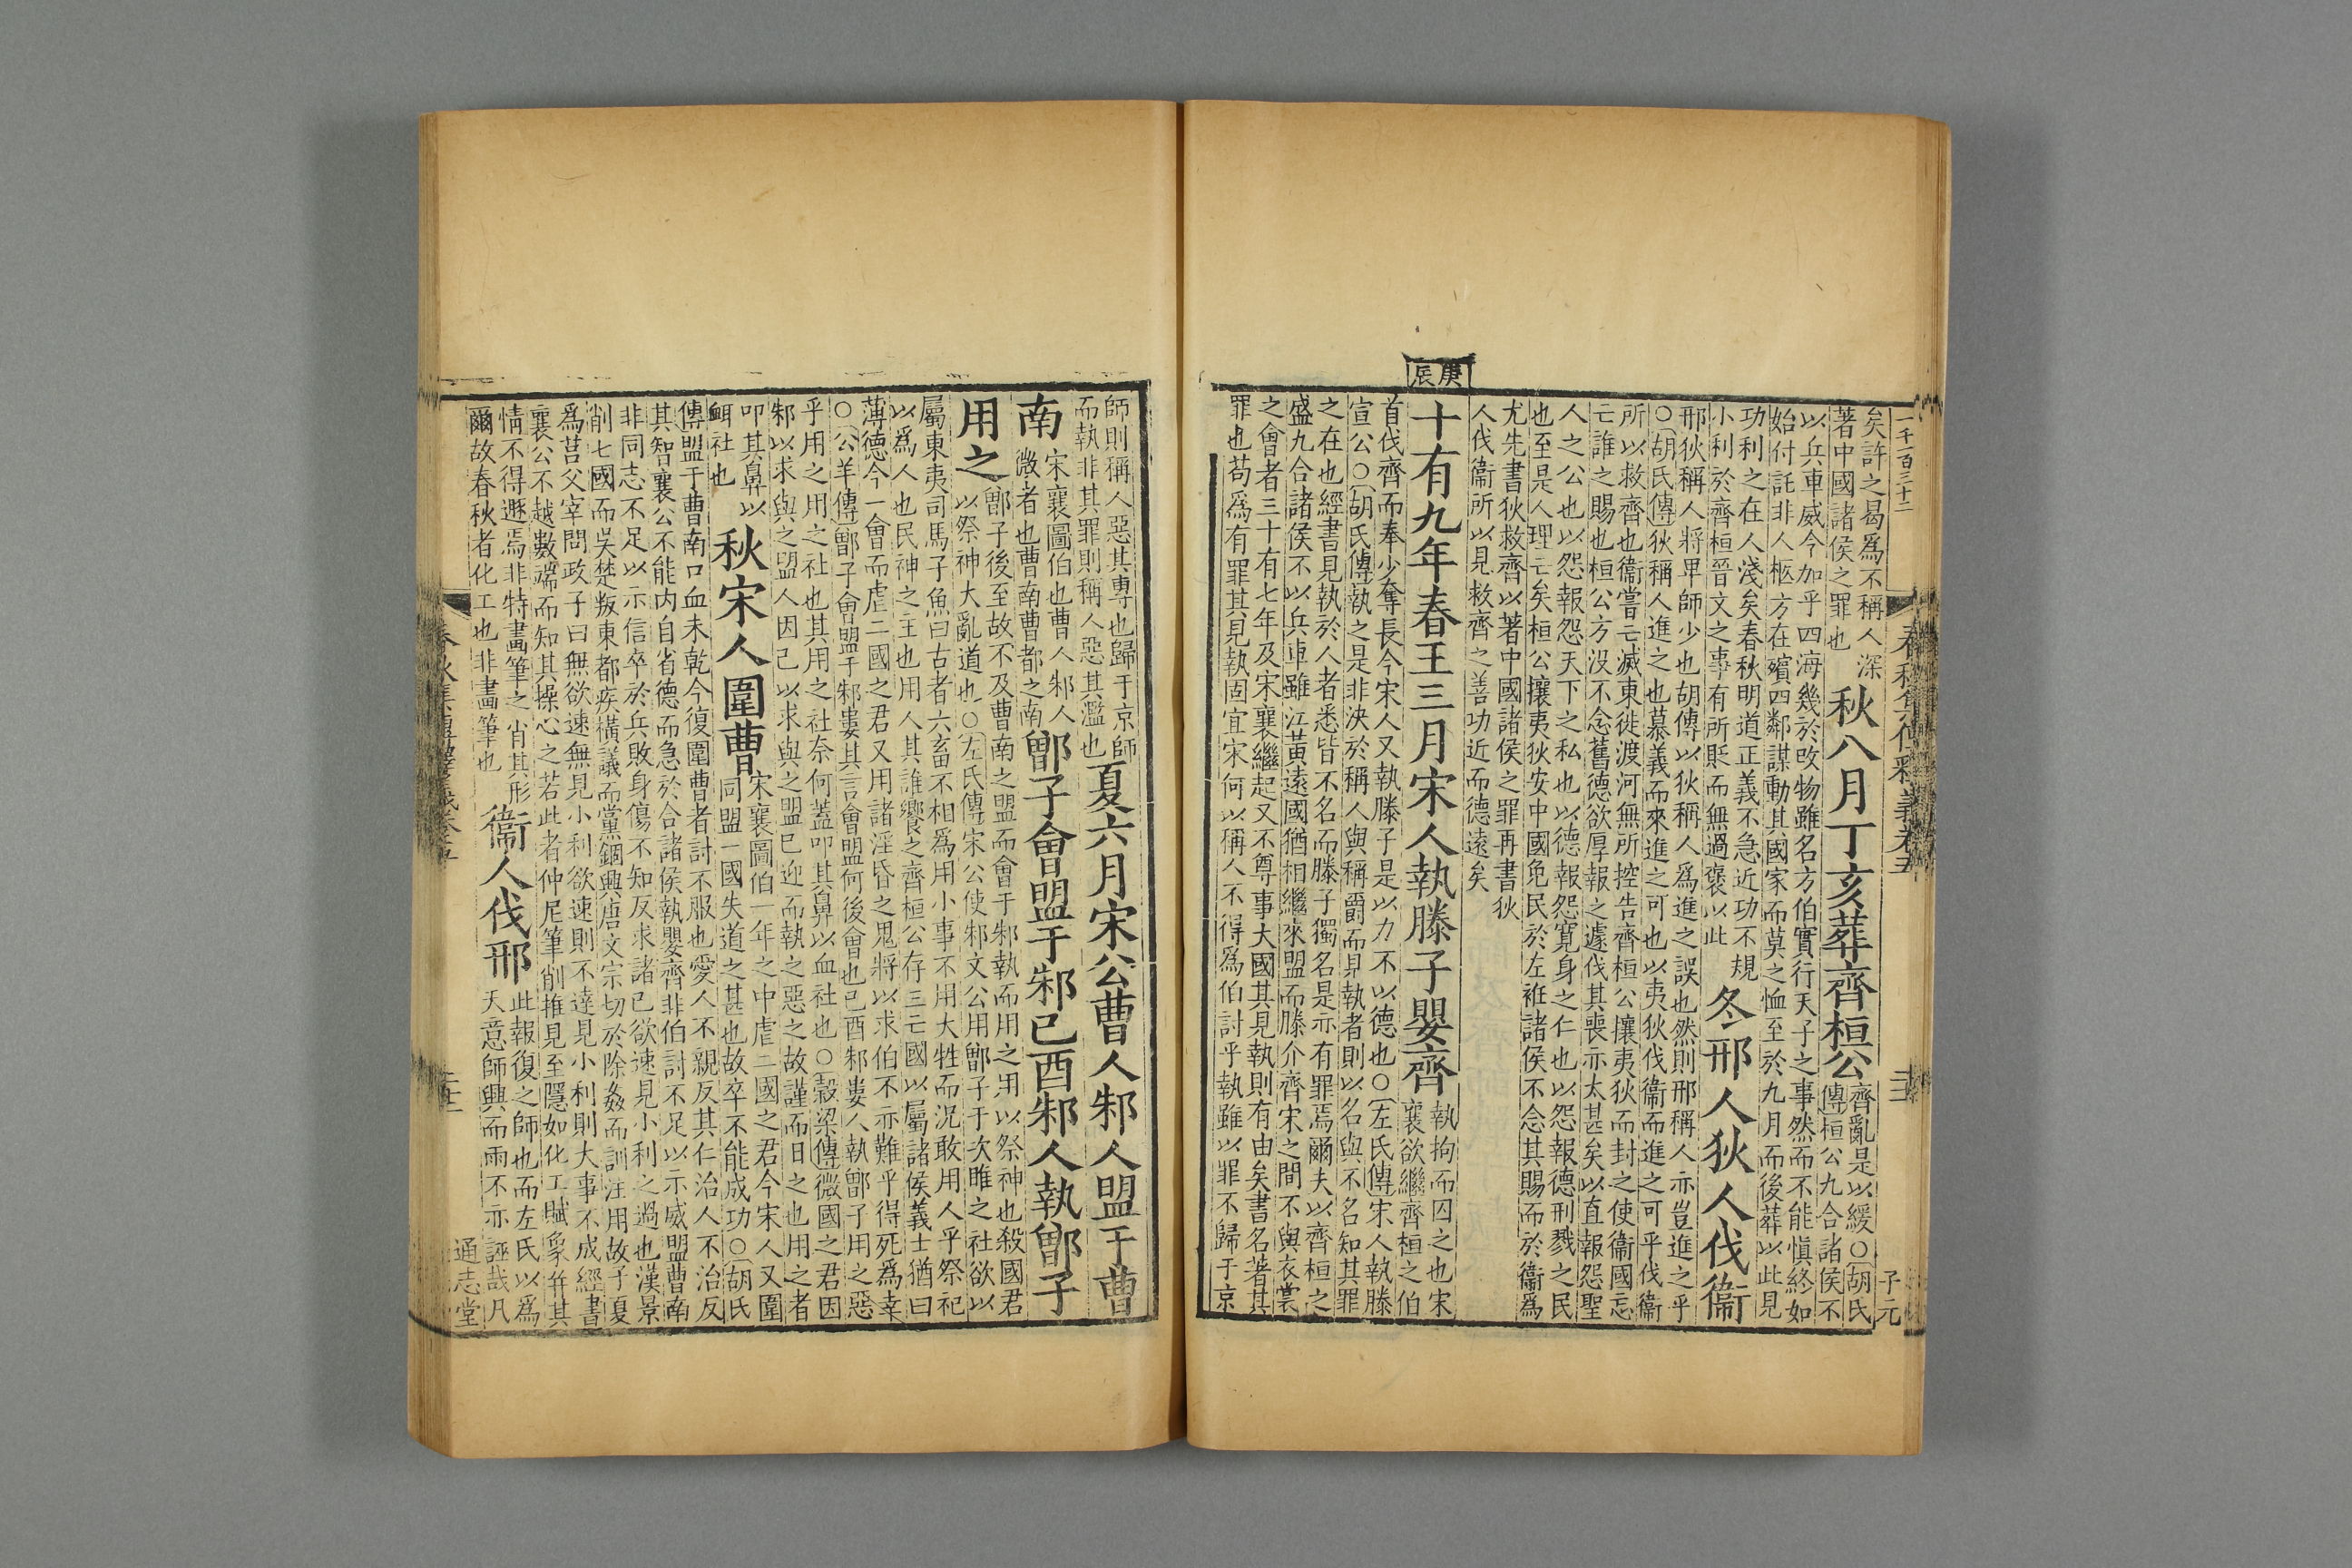 一千一百三十二
春秋集傳釋義卷五
三十
子元
矣許之曷為不稱人深
著中國諸侯之罪也
秋八月丁亥葬齊桓公
齊亂是以緩○胡氏
傳桓公九合諸侯不
以兵車威令加乎四海幾於改物雖名方伯實行天子之事然而不能慎終如
始付託非人柩方在殯四鄰謀動其國家而莫之恤至於九月而後葬以此見
功利之在人淺矣春秋明道正義不急近功不規
小利於齊桓晉文之事有所貶而無過褒以此
冬邢人狄人伐衞
邢狄稱人將卑師少也胡傳以狄稱人為進之誤也然則邢稱人亦豈進之乎
○胡氏傳狄稱人進之也慕義而來進之可也以夷狄伐衞而進之可乎伐衞
所以救齊也衞嘗亡滅東徙渡河無所控告齊桓公攘夷狄而封之使衞國忘
亡誰之賜也桓公方沒不念舊德欲厚報之遽伐其喪亦太甚矣以直報怨聖
人之公也以怨報怨天下之私也以德報怨寬身之仁也以怨報德刑戮之民
也至是人理亡矣桓公攘夷狄安中國免民於左衽諸侯不念其賜而於衞為
尤先書狄救齊以著中國諸侯之罪再書狄
人伐衞所以見救齊之善功近而德遠矣
庚辰
十有九年春王三月宋人執滕子嬰齊
執拘而囚之也宋
襄欲繼齊桓之伯
首伐齊而奉少奪長今宋人又執滕子是以力不以德也○左氏傳宋人執滕
宣公○胡氏傳執之是非決於稱人與稱爵而見執者則以名與不名知其罪
之在也經書見執於人者悉皆不名而滕子獨名是示有罪焉爾夫以齊桓之
盛九合諸侯不以兵車雖江黃遠國猶相繼來盟而滕介齊宋之間不與衣裳
之會者三十有七年及宋襄繼起又不尊事大國其見執則有由矣書名著其
罪也苟為有罪其見執固宜宋何以稱人不得為伯討乎執雖以罪不歸于京
師則稱人惡其專也歸于京師
而執非其罪則稱人惡其濫也
夏六月宋公曹人邾人盟于曹
南
宋襄圖伯也曹人邾人
微者也曹南曹都之南
鄫子會盟于邾己酉邾人執鄫子
用之
鄫子後至故不及曹南之盟而會于邾執而用之用以祭神也殺國君
以祭神大亂道也○左氏傳宋公使邾文公用鄫子于次睢之社欲以
屬東夷司馬子魚曰古者六畜不相為用小事不用大牲而況敢用人乎祭祀
以為人也民神之主也用人其誰饗之齊桓公存三亡國以屬諸侯義士猶曰
薄德今一會而虐二國之君又用諸淫昏之鬼將以求伯不亦難乎得死為幸
○公羊傳鄫子會盟于邾婁其言會盟何後會也己酉邾婁人執鄫子用之惡
乎用之用之社也其用之社奈何蓋叩其鼻以血社也○穀梁傳微國之君因
邾以求與之盟人因己以求與之盟已迎而執之惡之故謹而日之也用之者
叩其鼻以
衈社也
秋宋人圍曹
宋襄圖伯一年之中虐二國之君今宋人又圍
同盟一國失道之甚也故卒不能成功○胡氏
傳盟于曹南口血未乾今復圍曹者討不服也愛人不親反其仁治人不治反
其智襄公不能內自省德而急於合諸侯執嬰齊非伯討不足以示威盟曹南
非同志不足以示信卒於兵敗身傷不知反求諸己欲速見小利之過也漢景
削七國而吳楚叛東都疾橫議而黨錮興唐文宗切於除姦而訓注用故子夏
為莒父宰問政子曰無欲速無見小利欲速則不達見小利則大事不成經書
襄公不越數端而知其操心之若此者仲尼筆削推見至隱如化工賦象并其
情不得遯焉非特畫筆之肖其形
爾故春秋者化工也非畫筆也
衞人伐邢
此報復之師也而左氏以為
天意師興而雨不亦誣哉凡
通志堂